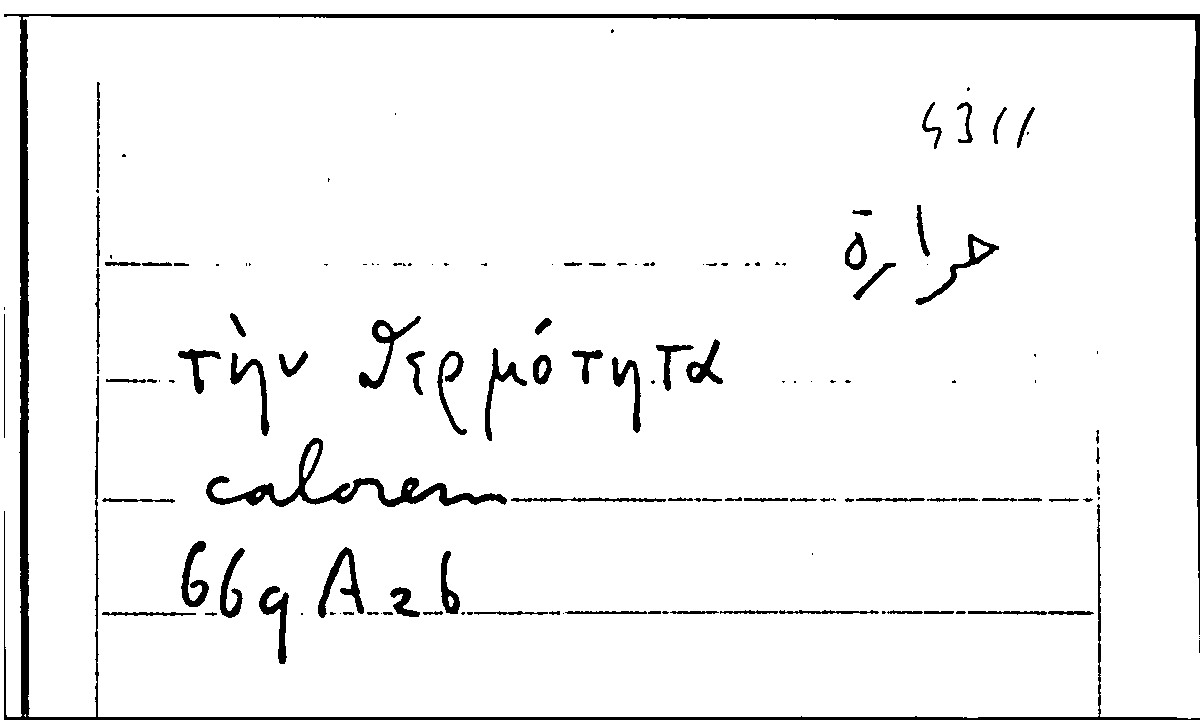 4311
حرارة
τὴν θερμότητα
calorem
669 A 26